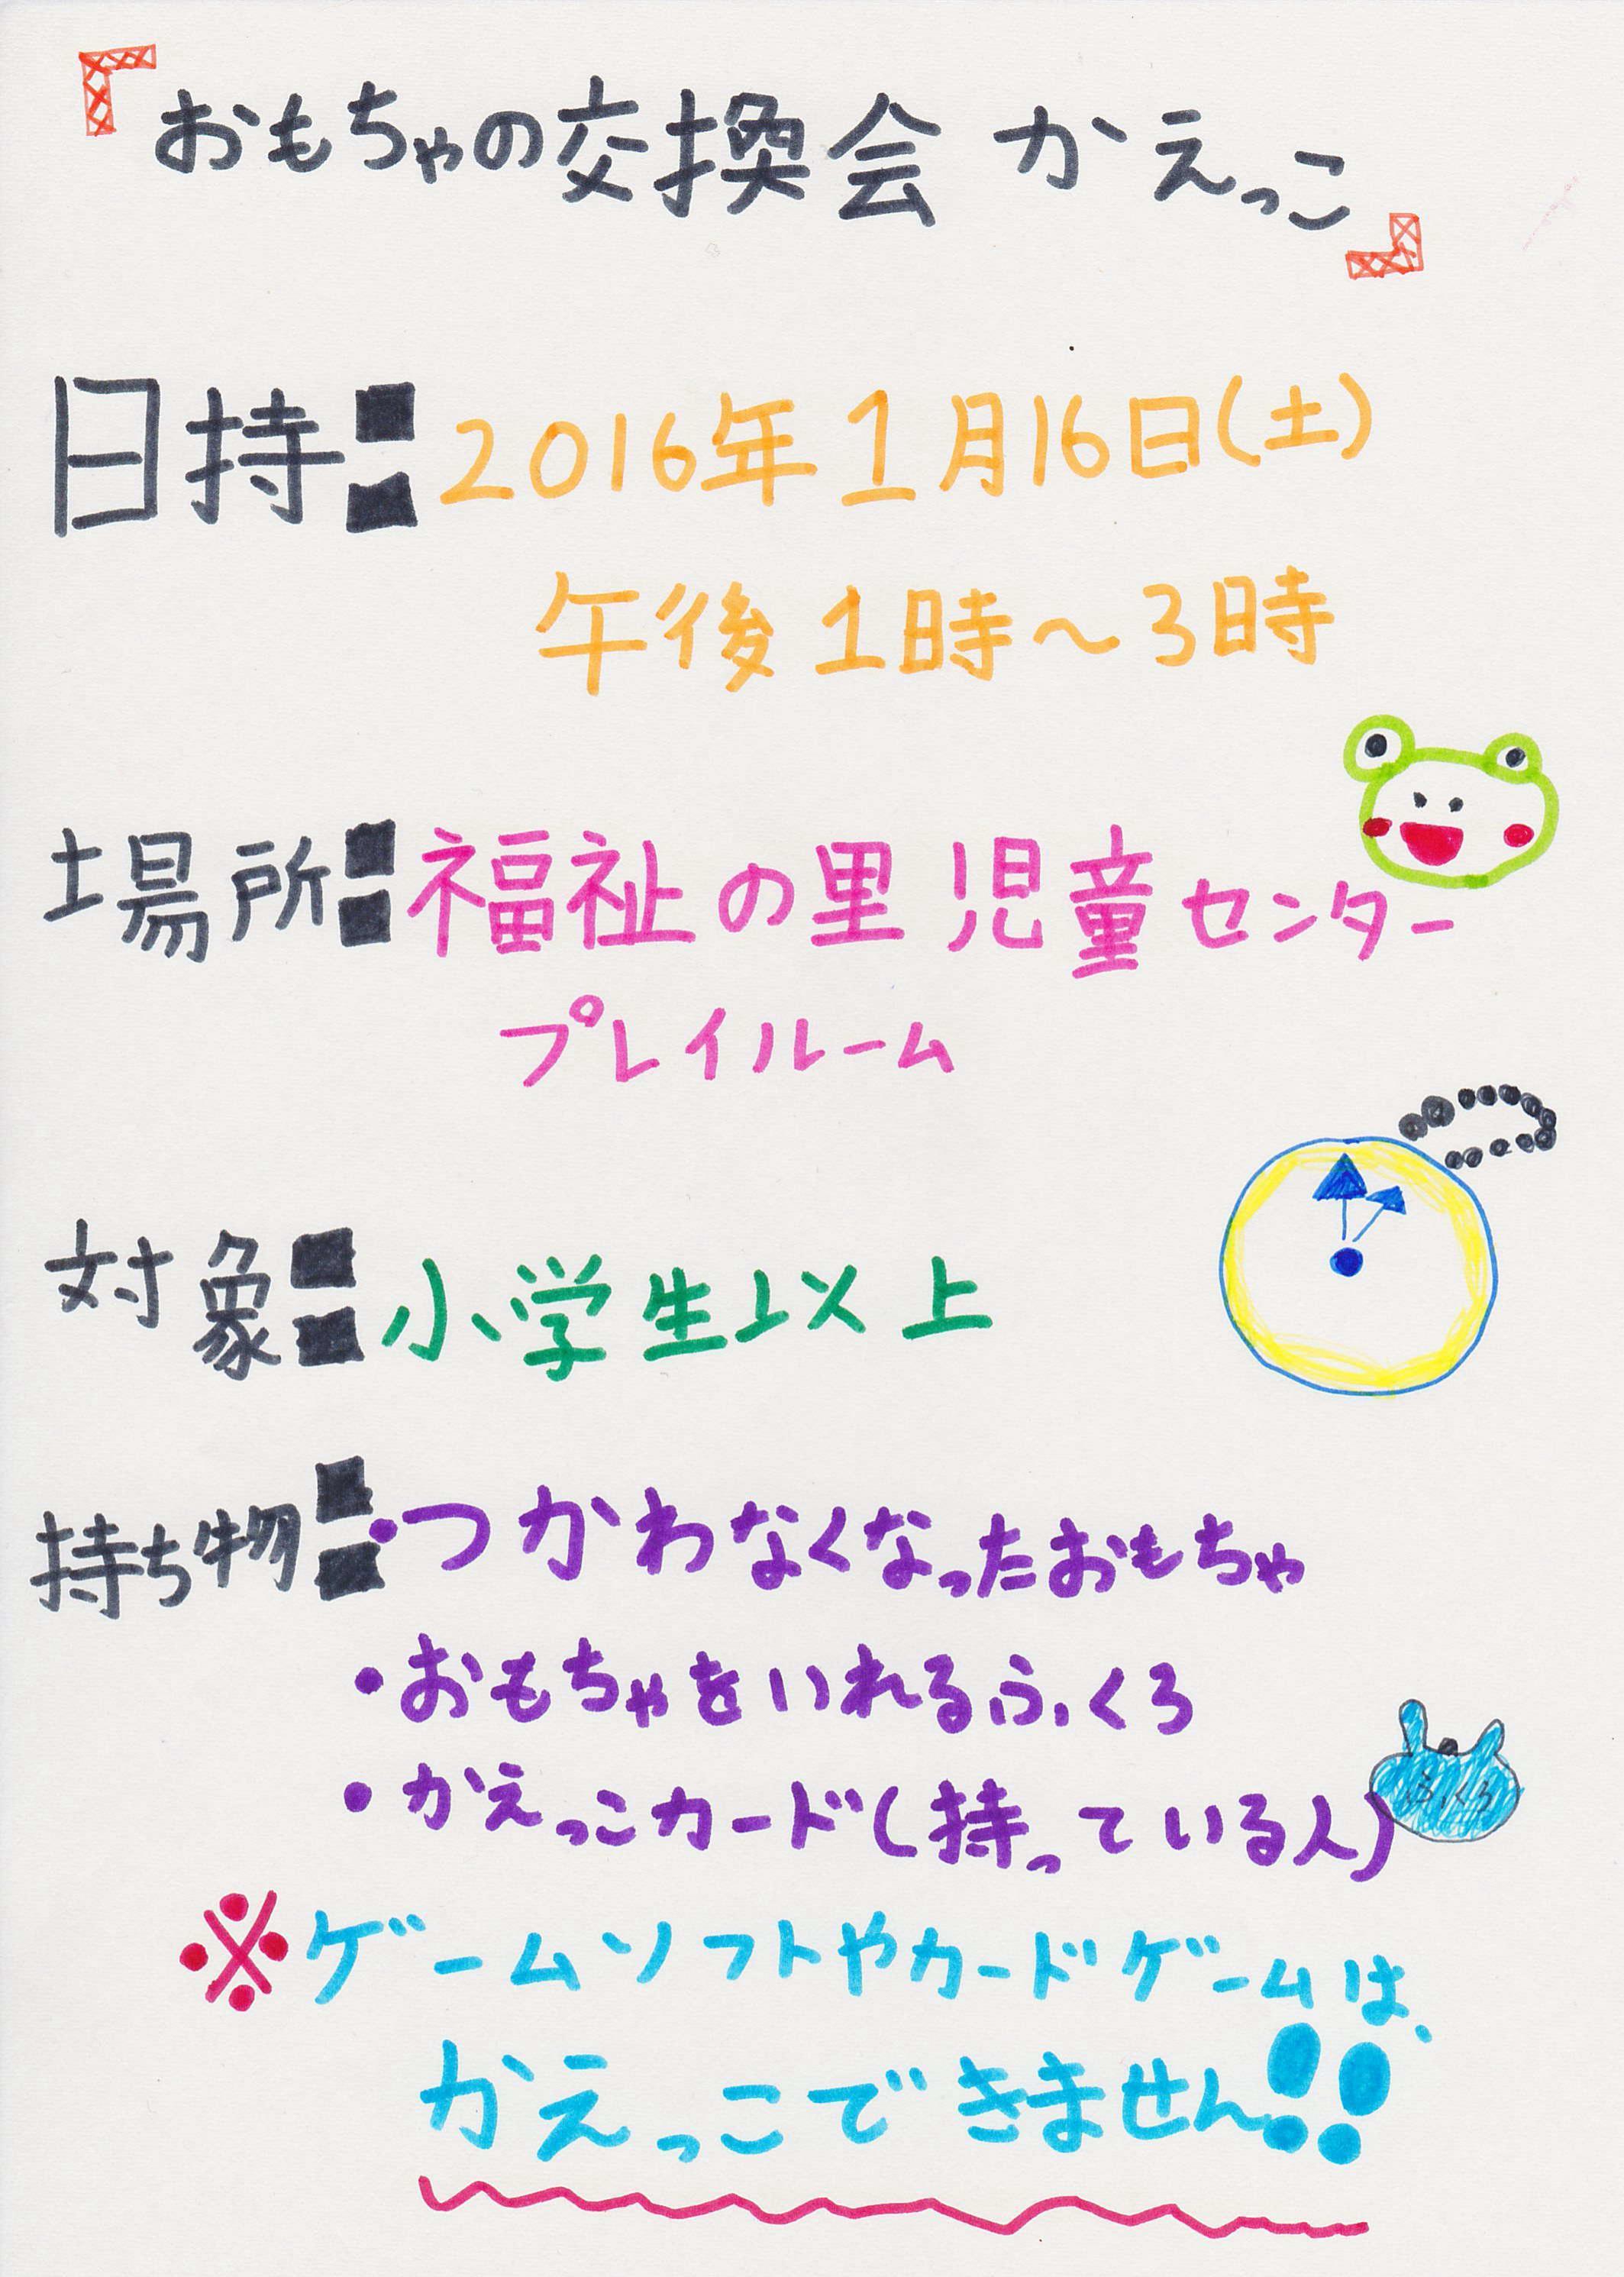 『おもちゃの交換会 かえっこ』
日持:2016年1月16日(土)
午後1時～3時
場所:福祉の里 児童センター
プレイルーム
対象:小学生以上
持ち物:・つかわなくなったおもちゃ
・おもちゃをいれるふくろ
・かえっこカード(持っている人)
ふくろ
※ゲームソフトやカードゲームは、
かえっこできません!!